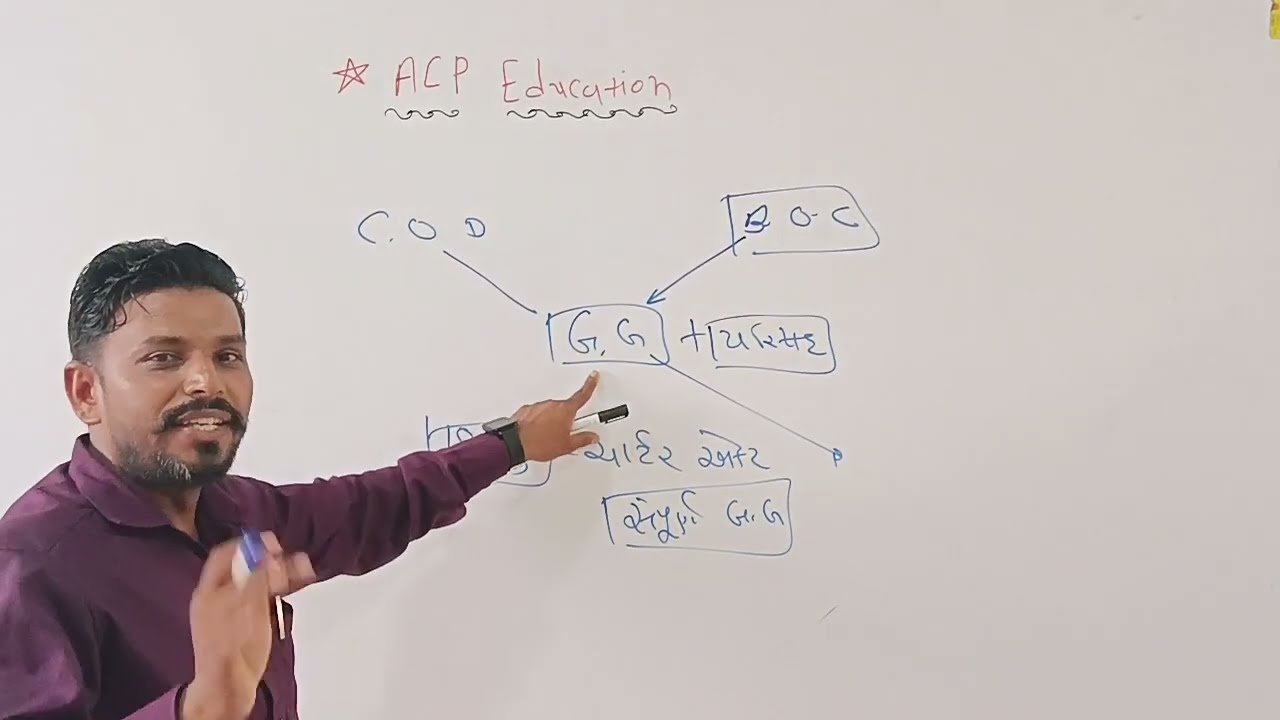 ☆ ACP Education
C.O D
B O C
G.G + પરિષદ
ચાર્ટર એક્ટ
સંપૂર્ણ G.G